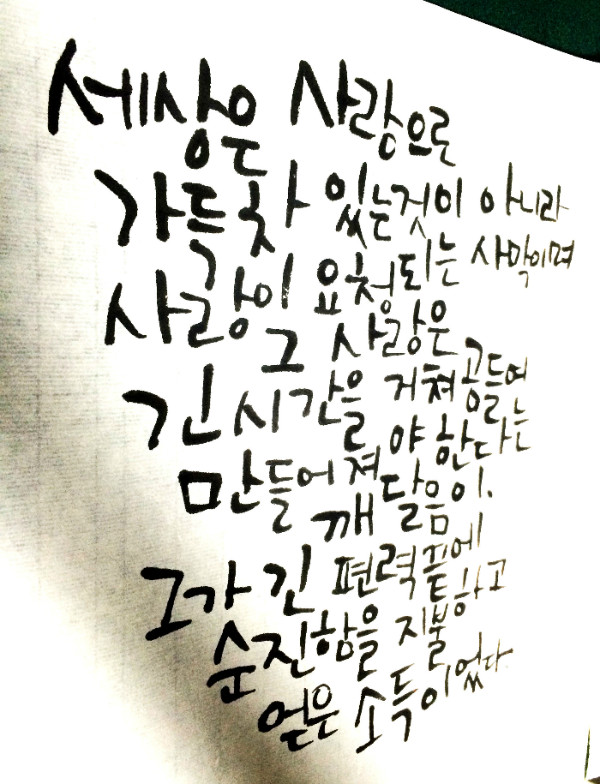 세상은 사랑으로
가득차 있는것이 아니라
사랑이 요청되는 사막이며
그 사랑은
긴 시간을 거쳐 공들여
만들어져야 한다는
깨달음이.
그가 긴 편력끝에
순진함을 지불하고
얻은 소득이었다.